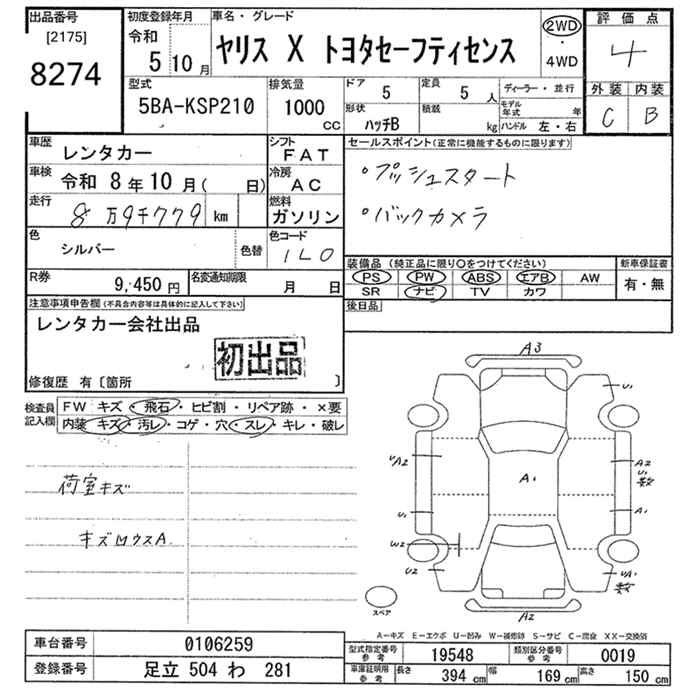 出品番号
[2175]
8274
初度登録年月
令和
5 10 月
車名・グレード
ヤリス X トヨタセーフティセンス
2WD
・
4WD
評価点
4
外装 内装
C B
型式
5BA-KSP210
排気量
1000
cc
ドア
5
定員
5 人
形状
ハッチB
積載
kg
ディーラー・並行
モデル年式 年
ハンドル 左・右
車歴
レンタカー
シフト
FAT
車検
令和 8 年 10 月( 日)
冷房
AC
走行
8 万9千779 km
燃料
ガソリン
色
シルバー
色替
色コード
1L0
R券
9,450 円
名変通知期限
月 日
セールスポイント(正常に機能するものに限ります)
・プッシュスタート
・バックカメラ
装備品(純正品に限り○をつけてください)
新車保証書
PS PW ABS エアB AW
SR ナビ TV カワ
有・無
後日品
注意事項申告欄(不具合内容等は具体的に記入して下さい)
レンタカー会社出品
初出品
修復歴 有〔箇所 〕
検査員
記入欄
FW キズ・飛石・ヒビ割・リペア跡・×要
内装 キズ・汚レ・コゲ・穴・スレ・キレ・破レ
荷室キズ
キズ凹ウスA
A3
U1
UA2
A2
U1
数
A1
U1
A1
W2
U2
UA1
数
A2
スペア
A-キズ E-エクボ U-凹み W-補修跡 S-サビ C-腐食 XX-交換済
車台番号
0106259
登録番号
足立 504 わ 281
型式指定番号
参考
19548
類別区分番号
参考
0019
車庫証明用
参考
長さ 394 cm
幅 169 cm
高さ 150 cm